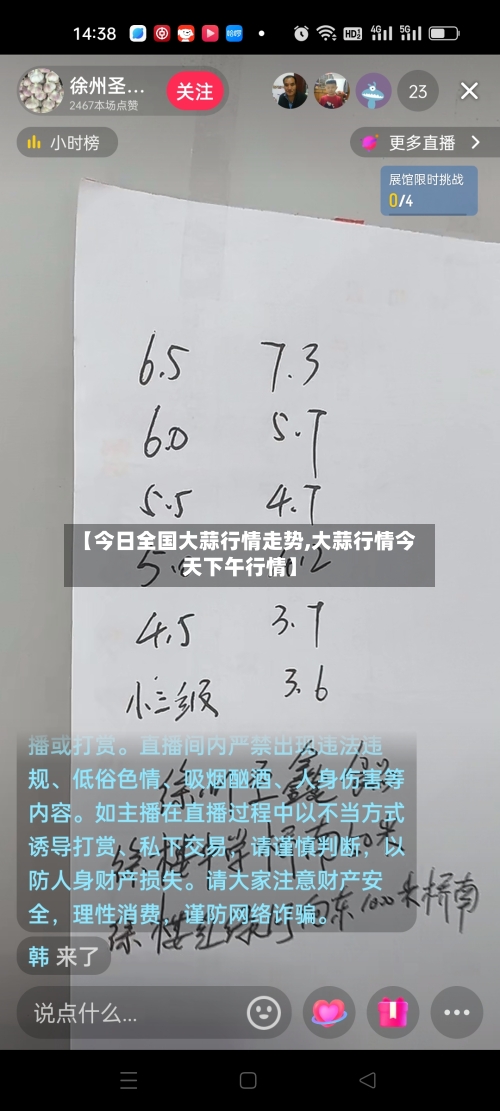 14:38
HD1 4G 5G
徐州圣...
2467本场点赞
关注
23
小时榜
更多直播
展馆限时挑战
0/4
6.5 7.3
6.0 5.7
5.5 4.7
【今日全国大蒜行情走势,大蒜行情今
天下午行情】
4.5 3.7
小三级 3.6
播或打赏。直播间内严禁出现违法违
规、低俗色情、吸烟酗酒、人身伤害等
内容。如主播在直播过程中以不当方式
诱导打赏、私下交易，请谨慎判断，以
防人身财产损失。请大家注意财产安
全，理性消费，谨防网络诈骗。
韩 来了
说点什么...